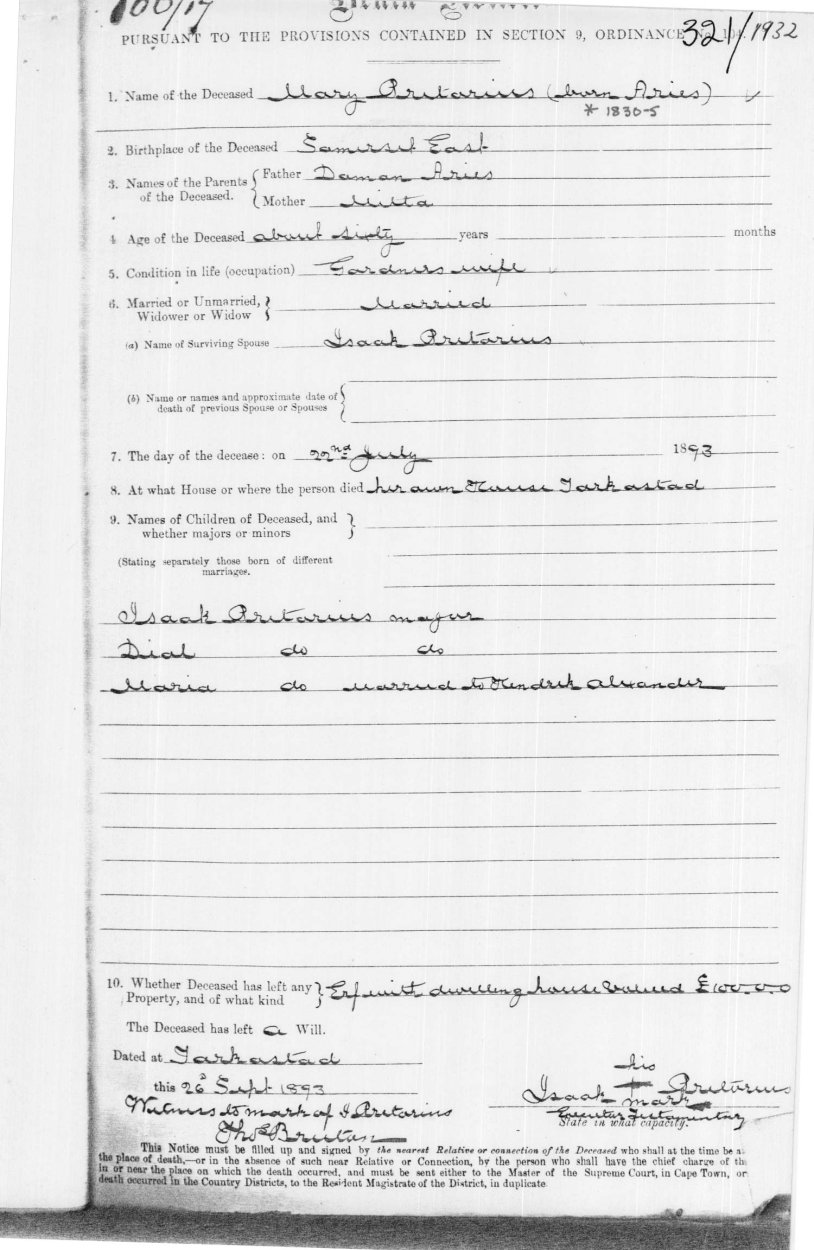 100/17
321/1932
PURSUANT TO THE PROVISIONS CONTAINED IN SECTION 9, ORDINANCE No. 104.
1. Name of the Deceased Mary Pretorius (born Aries) ✓
* 1830-5
2. Birthplace of the Deceased Somerset East
3. Names of the Parents of the Deceased. { Father Daman Aries
{ Mother Militta
4 Age of the Deceased about sixty years months
5. Condition in life (occupation) Gardners wife
6. Married or Unmarried, } Married
Widower or Widow }
(a) Name of Surviving Spouse Isaak Pretorius
(b) Name or names and approximate date of {
death of previous Spouse or Spouses
7. The day of the decease: on 22nd July 1893
8. At what House or where the person died her awn House Tarkastad
9. Names of Children of Deceased, and }
whether majors or minors
(Stating separately those born of different
marriages.
Isaak Pretorius major
Dial do do
Maria do married to Hendrik Alexander
10. Whether Deceased has left any } Erf with dwelling house valued £100.0.0
Property, and of what kind }
The Deceased has left a Will.
Dated at Tarkastad
his
this 26 Sept 1893
Isaak + Pretorius
mark
Witness to mark of I Pretorius
Executor Testamentary
State in what capacity.
Thos Bruton
This Notice must be filled up and signed by the nearest Relative or connection of the Deceased who shall at the time be a
the place of death,—or in the absence of such near Relative or Connection, by the person who shall have the chief charge of th
in or near the place on which the death occurred, and must be sent either to the Master of the Supreme Court, in Cape Town, or
death occurred in the Country Districts, to the Resident Magistrate of the District, in duplicate